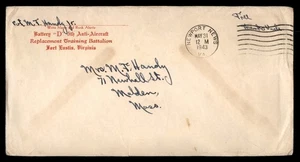 M.T. Handy Jr.
Battery "D" Anti-Aircraft
Replacement Training Battalion
Fort Eustis, Virginia
Free
NEWPORT NEWS
12 M
1943
Mrs. M. T. Handy
71 Newhall St.,
Malden,
Mass.